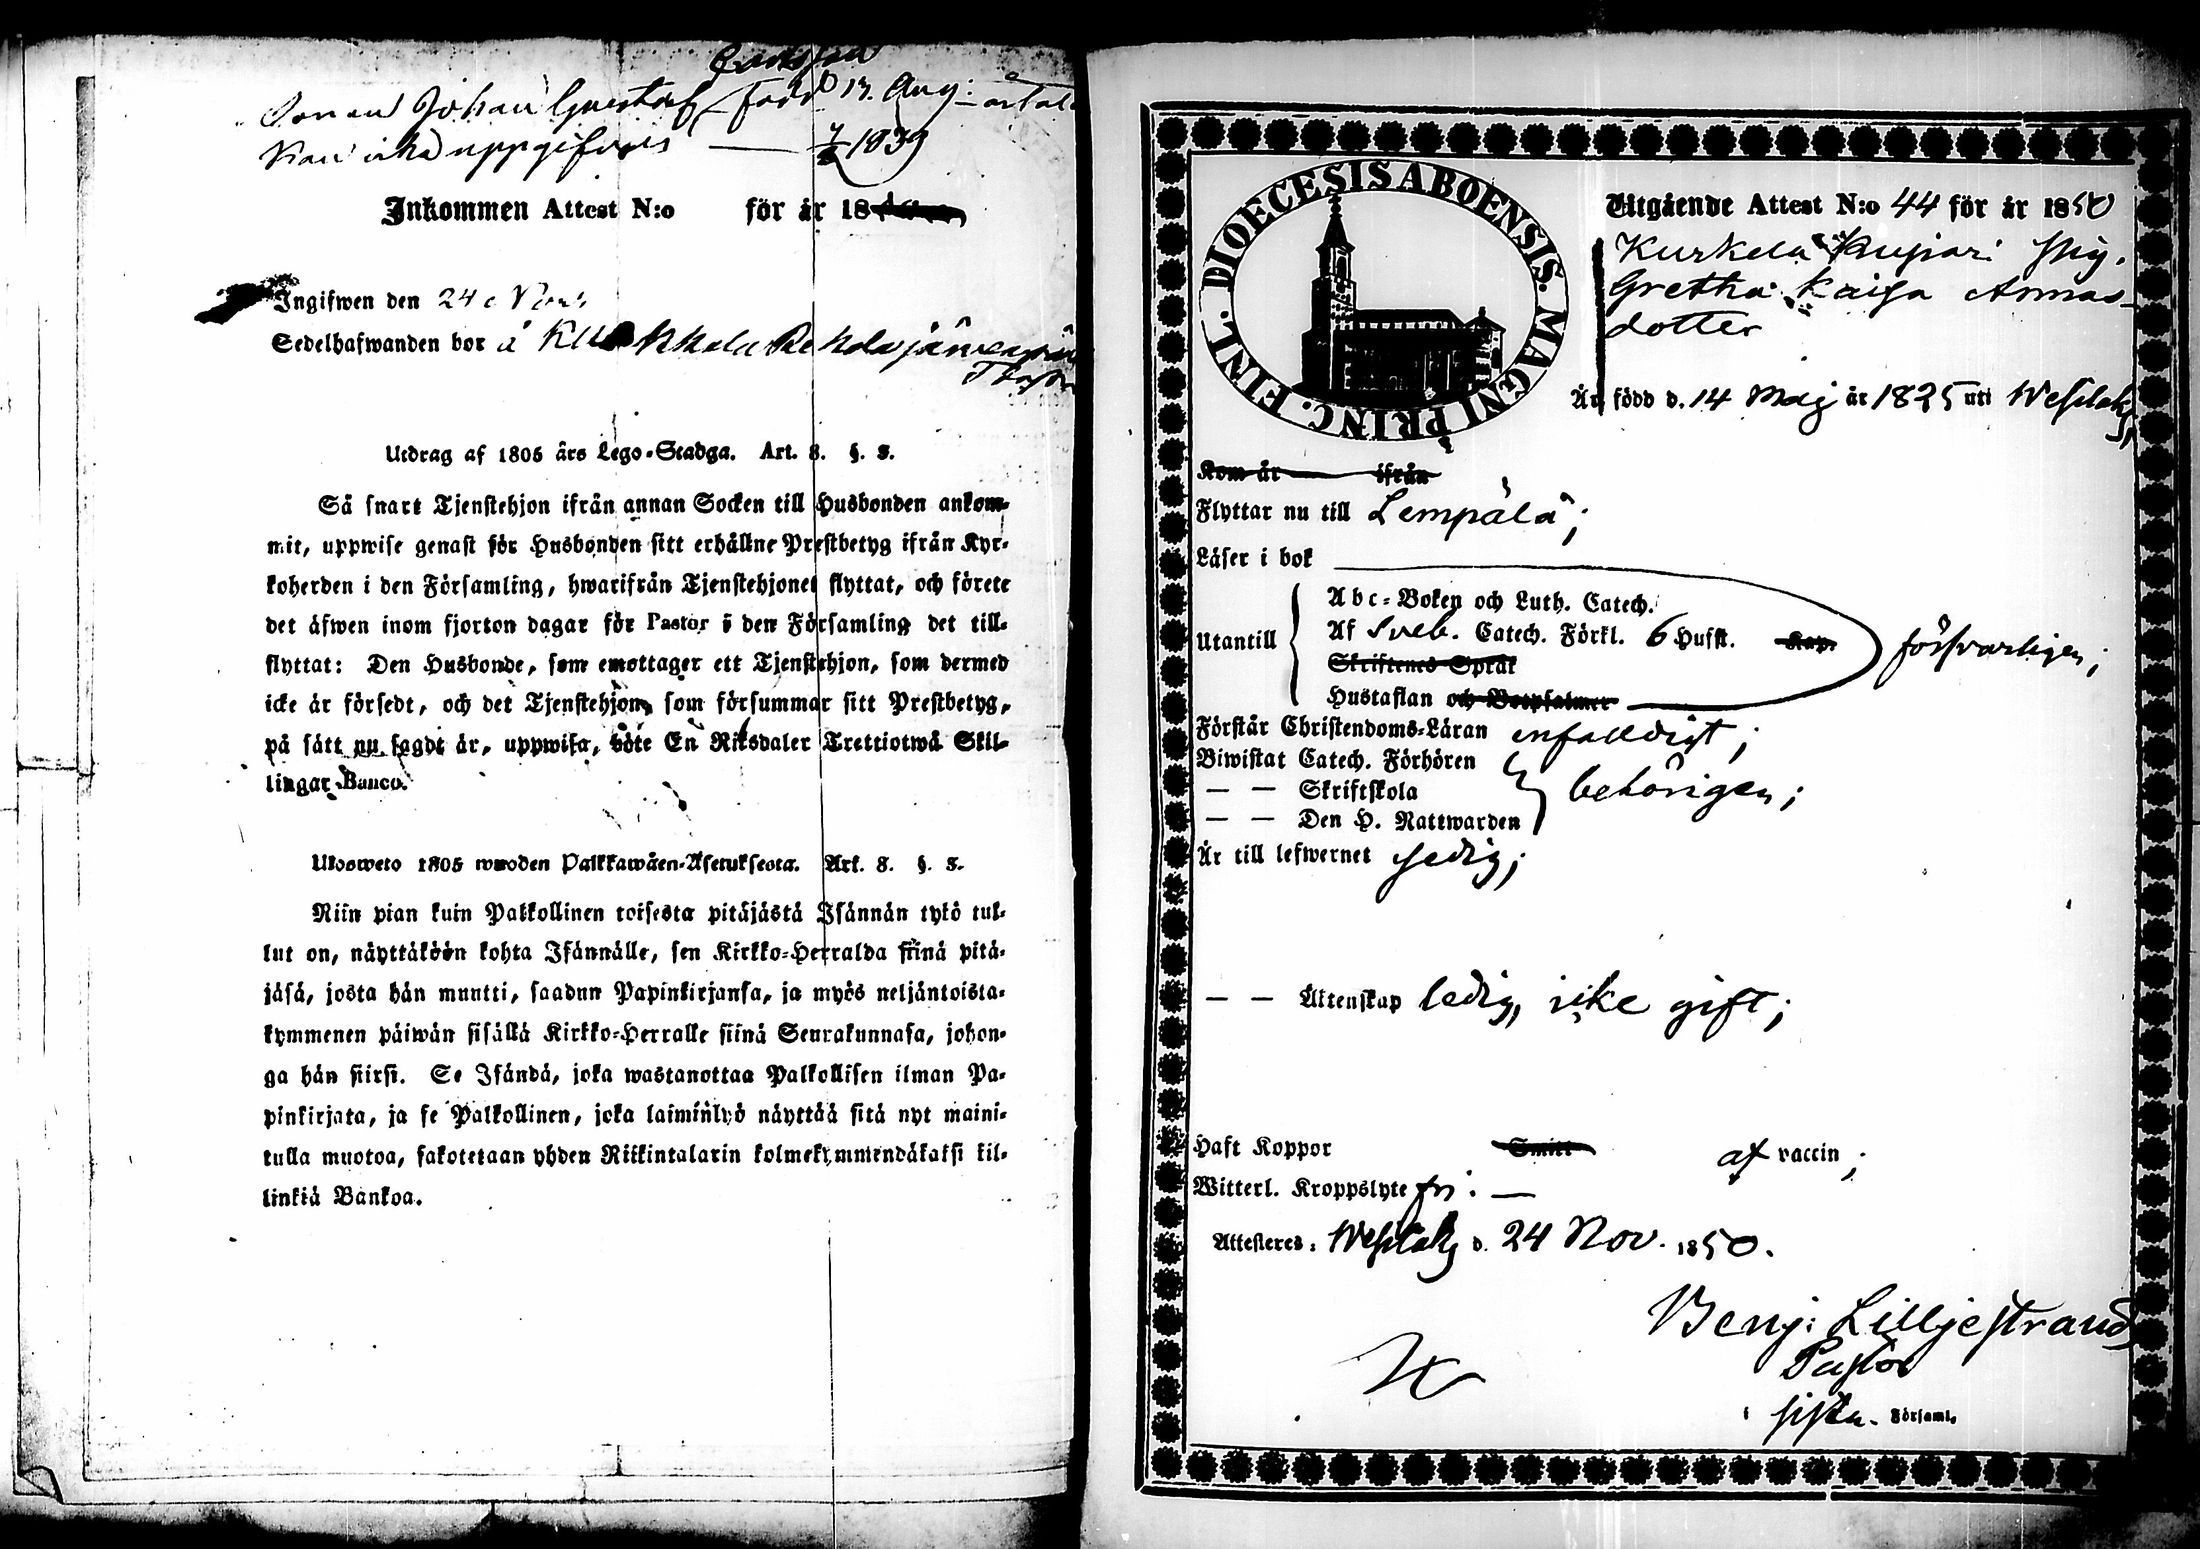 Carlsson
Sonen Johan Gustaf född 17. Aug:
kan icke uppgifves 1839
Inkommen Attest N:o för år 18
Ingifwen den 24
Sedelhafwanden bor å
Utdrag af 1805 års Lego-Stadga. Art. 8. §. 3.
Så snart Tjenstehjon ifrån annan Socken till Husbonden ankom-
mit, uppwise genast för Husbonden sitt erhållne Prestbetyg ifrån Kyr-
koherden i den Församling, hwarifrån Tjenstehjonet flyttat, och förete
det äfwen inom fjorton dagar för Pastor i den Församling det till-
flyttat: Den Husbonde, som emottager ett Tjenstehjon, som dermed
icke är försedt, och det Tjenstehjon, som försummar sitt Prestbetyg,
på sätt nu sagdt är, uppwisa, böte En Riksdaler Trettiotwå Skil-
lingar Banco.
Ulosweto 1805 wuoden Palkkawäen-Asetuksesta. Art. 8. §. 3.
Niin pian kuin Palkollinen toisesta pitäjästä Isännän tykö tul-
lut on, näyttäköön kohta Isännälle, sen Kirkko-Herralda siinä pitä-
jäsä, josta hän muutti, saadun Papinkirjansa, ja myös neljäntoista-
kymmenen päiwän sisällä Kirkko-Herralle siinä Seurakunnasa, johon-
ga hän siirsi. Se Isändä, joka wastanottaa Palkollisen ilman Pa-
pinkirjata, ja se Palkollinen, joka laiminlyö näyttää sitä nyt maini-
tulla muotoa, sakotetaan yhden Riikintalarin kolmekymmendäkaksi kil-
linkiä Bankoa.
DIOECESIS ABOENSIS. MAGNI PRINC. FINL.
Utgående Attest N:o 44 för år 1850
Kurkela Pig.
Gretha Kaisa Annas-
dotter
Är född d. 14 Maj år 1825 uti Westlax,
Kom år ifrån
Flyttar nu till Lempälä;
Läser i bok
Utantill
Abc-Boken och Luth. Catech.
Af Sveb. Catech. Förkl. 6 Hufst. Kap.
Skriftenes Språk
Hustaflan och Botpsalmer
försvarligen;
Förstår Christendoms-Läran enfalldigt;
Biwistat Catech. Förhören
— — Skriftskola
— — Den H. Nattwarden
behörigen;
Är till lefwernet sedig;
— — Äktenskap ledig, icke gift;
Haft Koppor Smitt af vaccin;
Witterl. Kroppslyte fri. —
Attesteres: Westlax d. 24 Nov. 1850.
Benj: Lilljestrand
Pastor
i Församl.